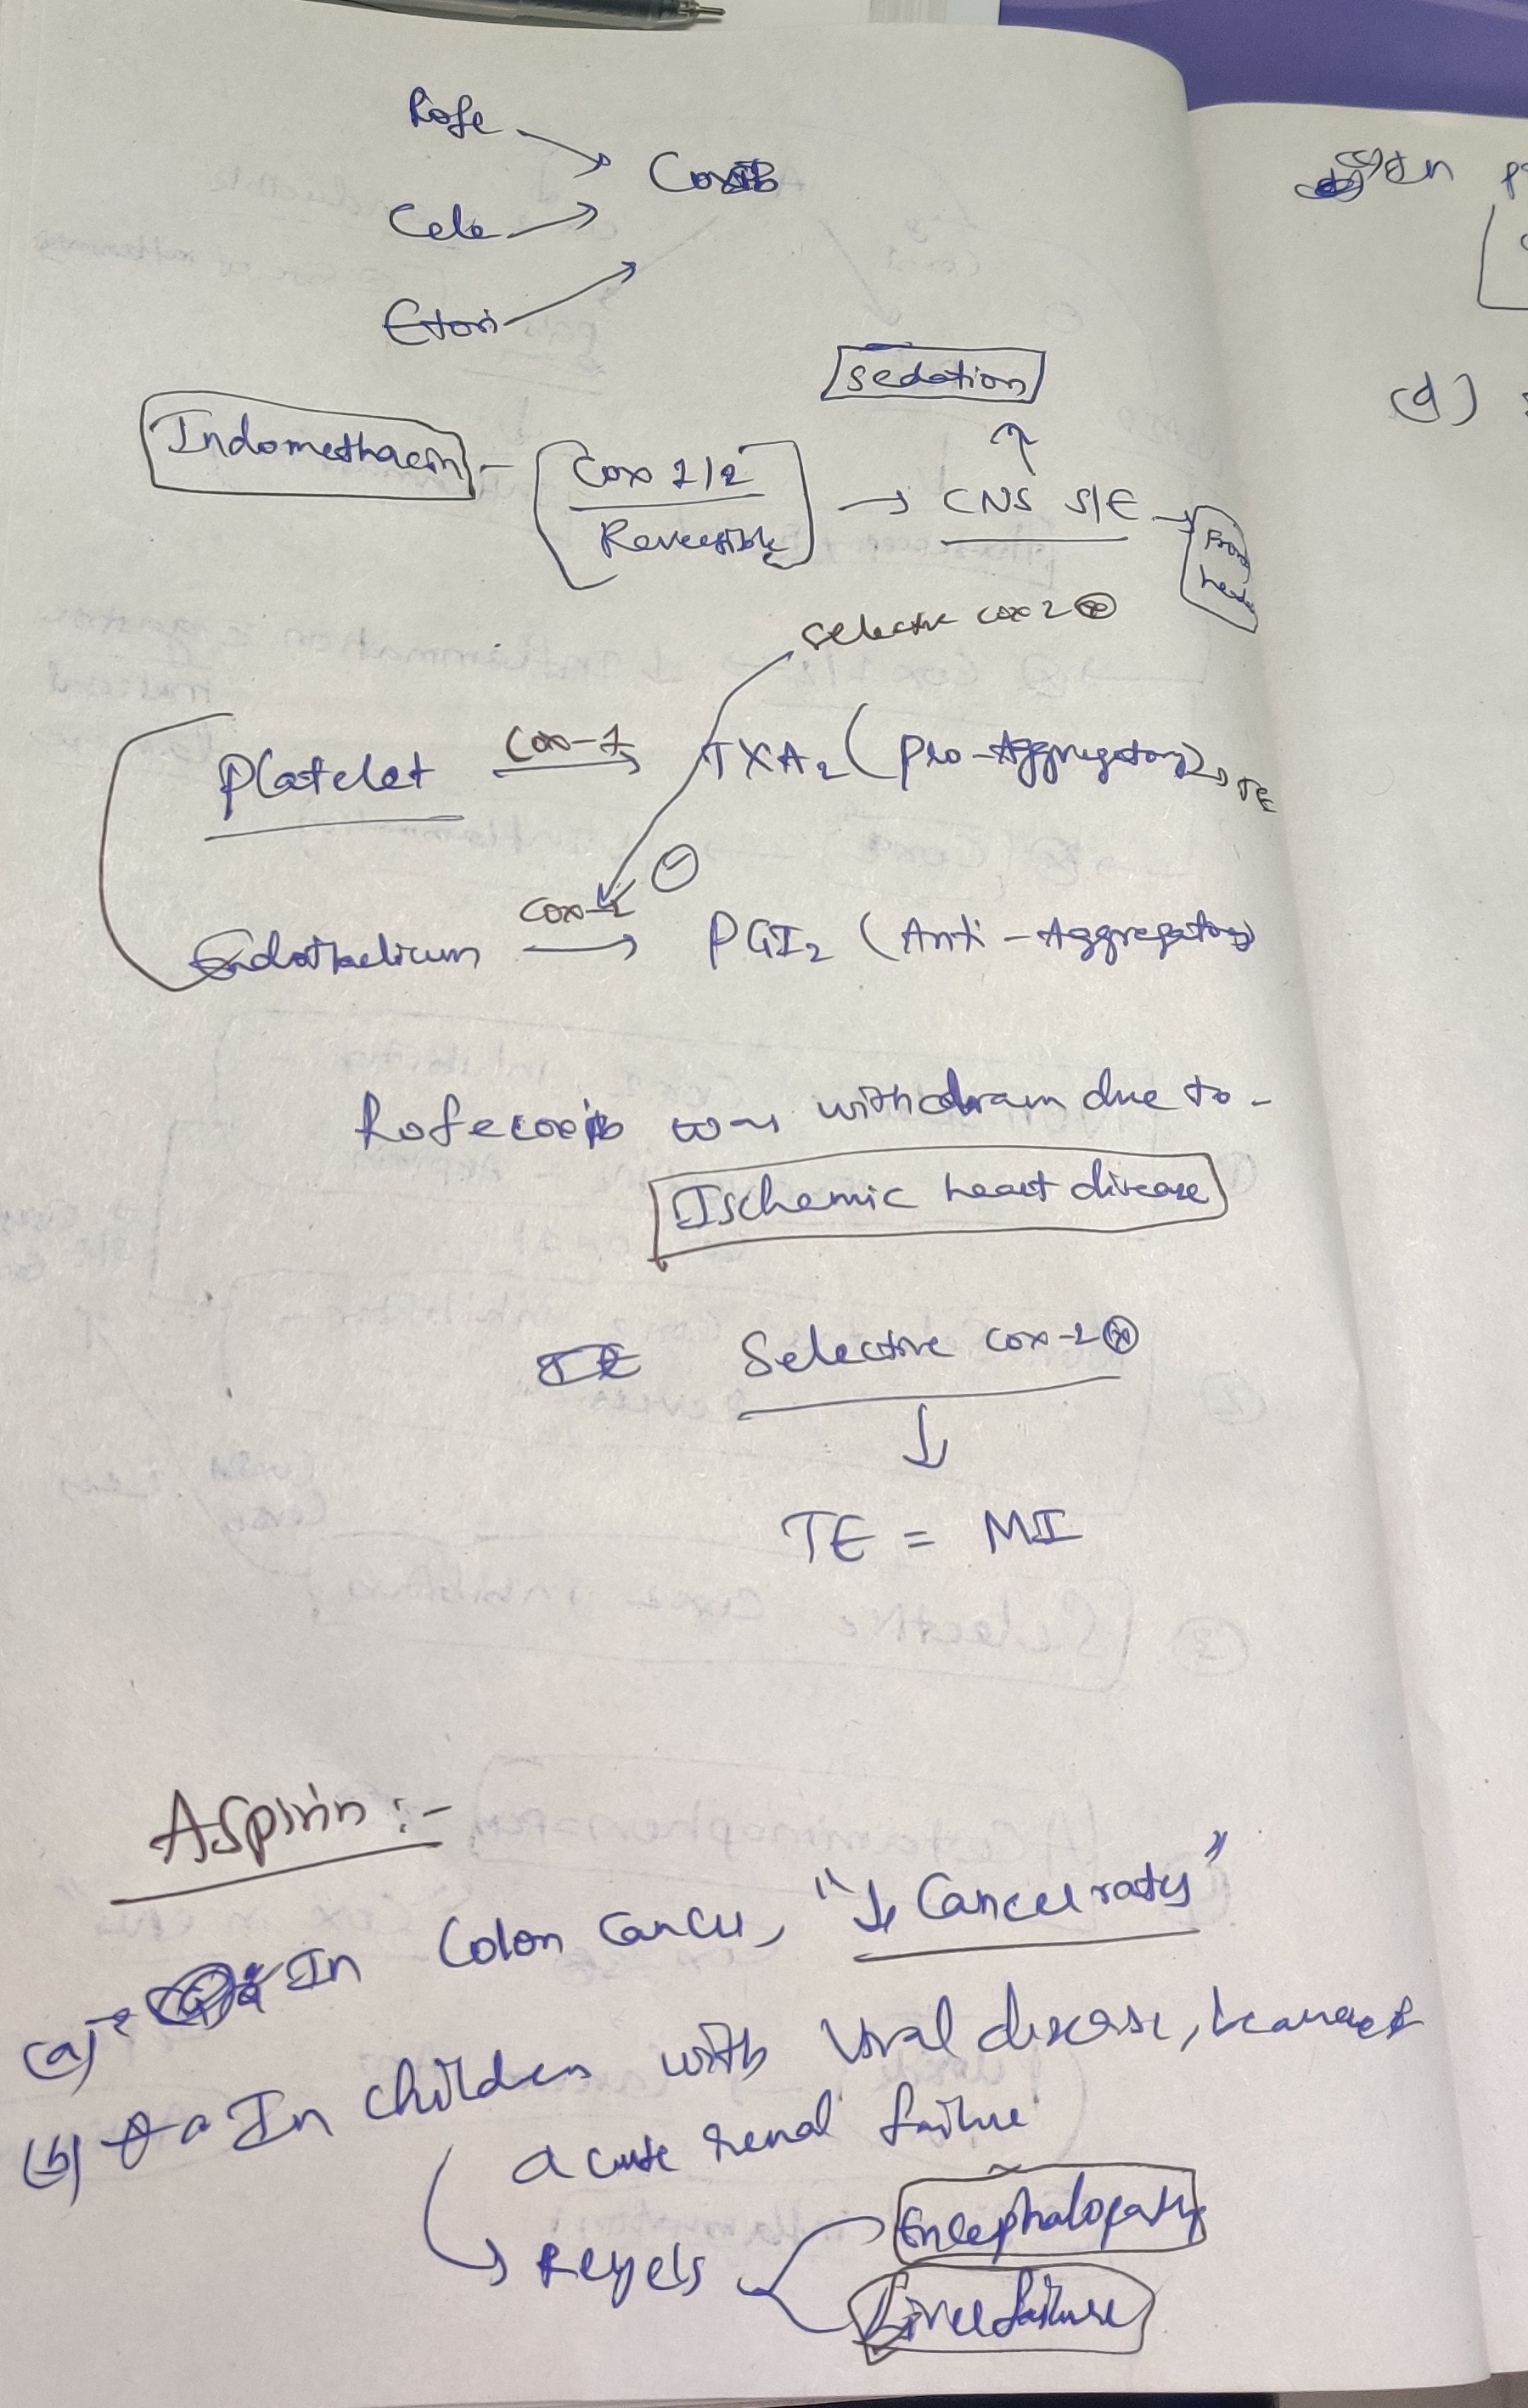 Rofe
Coxib
Cele
Etori
sedation
Indomethacin - Cox 1/2 → CNS S/E →
Reversible
Selective cox 2 ⊗
Platelet Cox-1 → TXA2 (Pro-Aggregatory) → TE
⊖
Endothelium Cox-2 → PGI2 (Anti-Aggregatory)
Rofecoxib was withdrawn due to -
Ischemic heart disease
Selective cox-2 ⊗
↓
TE = MI
Aspirin :-
(a) In Colon Cancer, "↓ Cancer rates"
(b) In children with viral disease,
acute renal failure
Reyels Encephalopathy
Liver failure
In
(d)